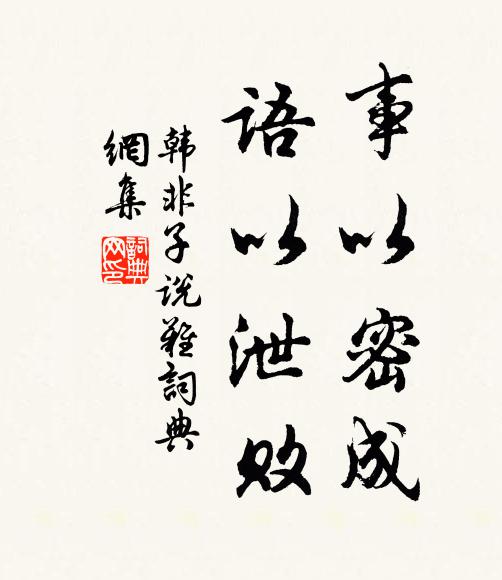 事以密成
语以泄败
韩非子说难词典
網集
詞典
网印